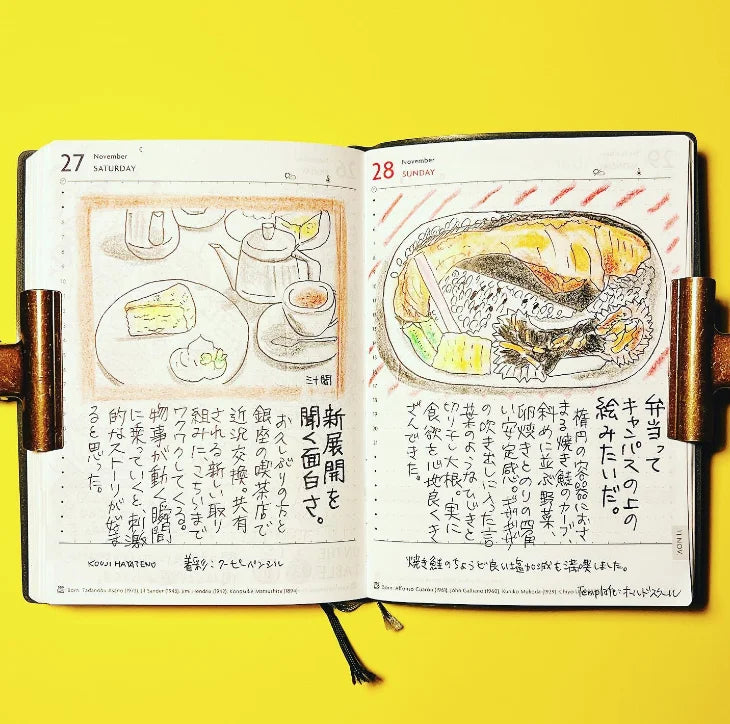 27
November
SATURDAY
三十間
新展開を
聞く面白さ。
お久しぶりの方と
銀座の喫茶店で
近況交換。共有
される新しい取り
組みにこちらまで
ワクワクしてくる。
物事が動く瞬間
に乗っていくと、刺激
的なストーリーが始ま
ると思った。
KOUJI HAYATENO
着彩：クーピーペンシル
Born: Tadanobu Asano (1973), Jil Sander (1943), Jimi Hendrix (1942), Konosuke Matsushita (1894)
28
November
SUNDAY
弁当って
キャンパスの上の
絵みたいだ。
楕円の容器におさ
まる焼き鮭のカーブ、
斜めに並ぶ野菜、
卵焼きとのりの四角
い安定感。ギザギザ
の吹き出しに入った言
葉のようなひじきと
切り干し大根。実に
食欲を心地良くき
ざんできた。
焼き鮭のちょうど良い塩加減も満喫しました。
11 NOV
Template：オールドスクール